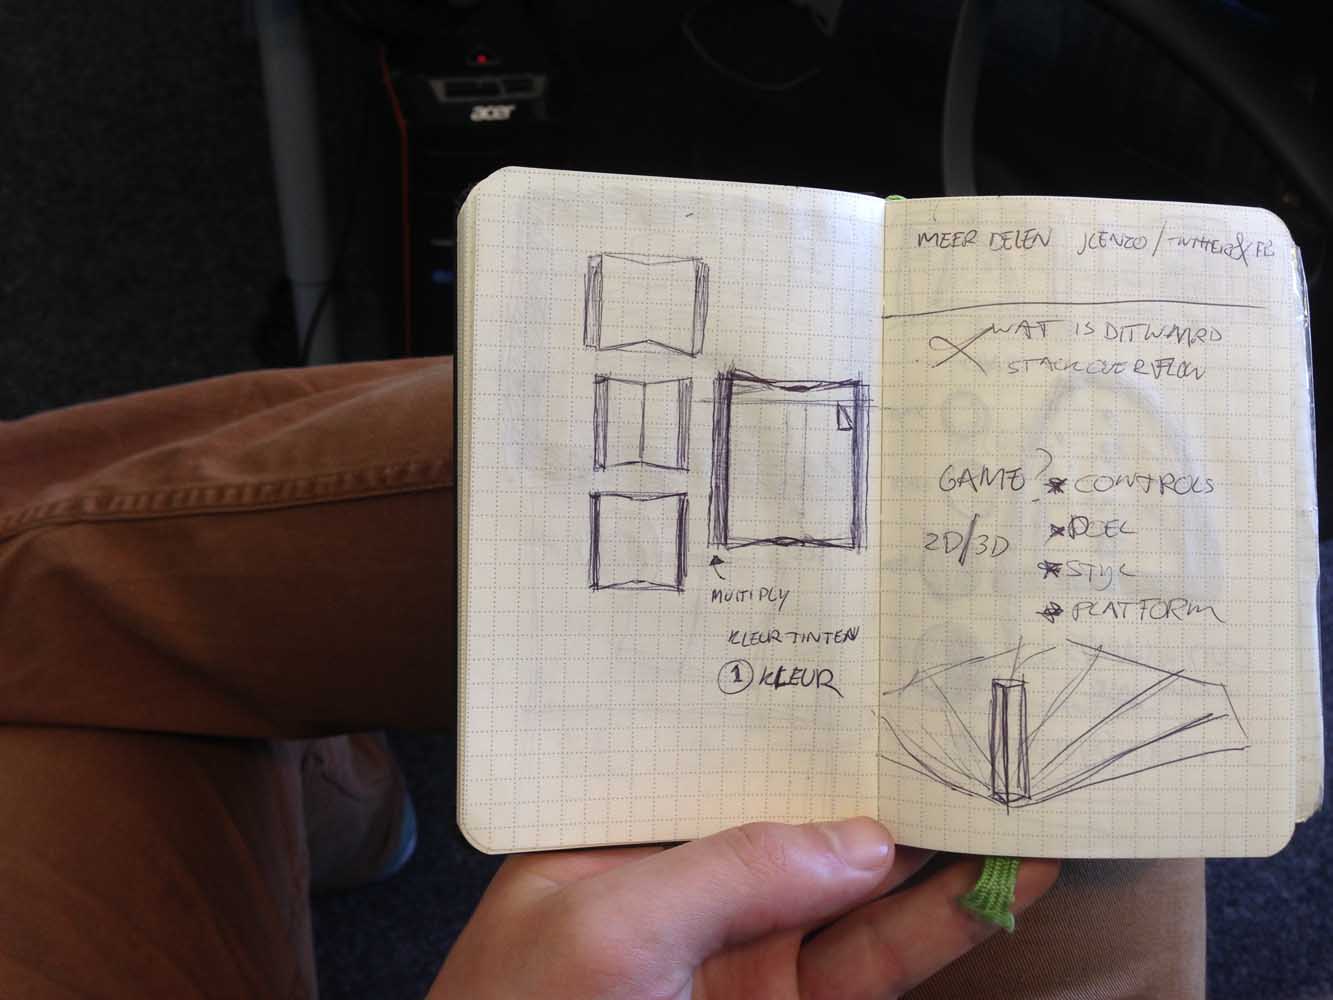 acer
MULTIPLY
KLEURTINTEN
1 KLEUR
MEER DELEN / TWITTER & FB
WAT IS DIT WAARD
STACKOVERFLOW
GAME? * CONTROLS
2D/3D * DOEL
* STYL
* PLATFORM